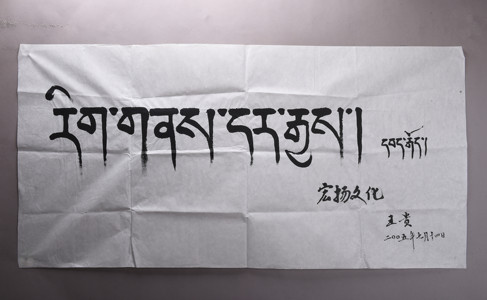 རིག་གནས་དར་རྒྱས།
宏扬文化
王贵
二〇〇五年七月十一日